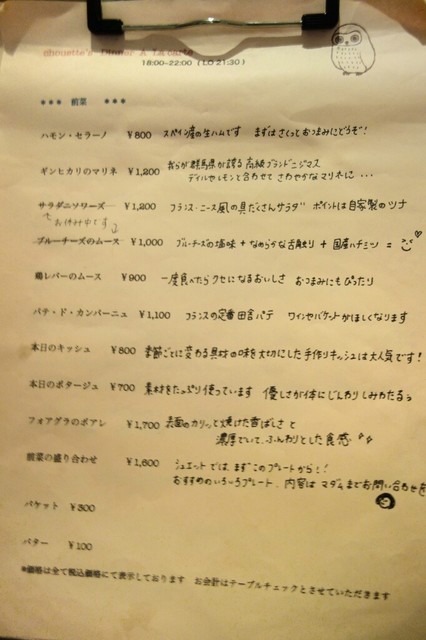 chouette's Dinner A La carte
18:00~22:00 (LO 21:30)
*** 前菜 ***
ハモン・セラーノ ¥800 スペイン産の生ハムです まずはさくっとおつまみにどうぞ!
ギンヒカリのマリネ ¥1,200 我らが群馬県が誇る高級ブランドニジマス
ディルやレモンと合わせて さわやかなマリネに…
サラダニソワーズ ¥1,200 フランス・ニース風の具だくさんサラダ ポイントは自家製のツナ
お休み中です
ブルーチーズのムース ¥1,000 ブルーチーズの塩味 + なめらかな舌触り + 国産ハチミツ =
鶏レバーのムース ¥900 一度食べたらクセになるおいしさ おつまみにもぴったり
パテ・ド・カンパーニュ ¥1,100 フランスの定番田舎パテ ワインやバゲットがほしくなります
本日のキッシュ ¥800 季節ごとに変わる具材の味を大切にした手作りキッシュは大人気です!
本日のポタージュ ¥700 素材をたっぷり使っています 優しさが体にじんわりしみわたるぅ
フォアグラのポアレ ¥1,700 表面のカリッと焼けた香ばしさと
濃厚でいて、ふんわりとした食感
前菜の盛り合わせ ¥1,600 シュエットでは、まずこのプレートから!!
おすすめのいろいろプレート、内容はマダムまでお問い合わせを
バケット ¥300
バター ¥100
*価格は全て税込価格にて表示しております お会計はテーブルチェックとさせていただきます